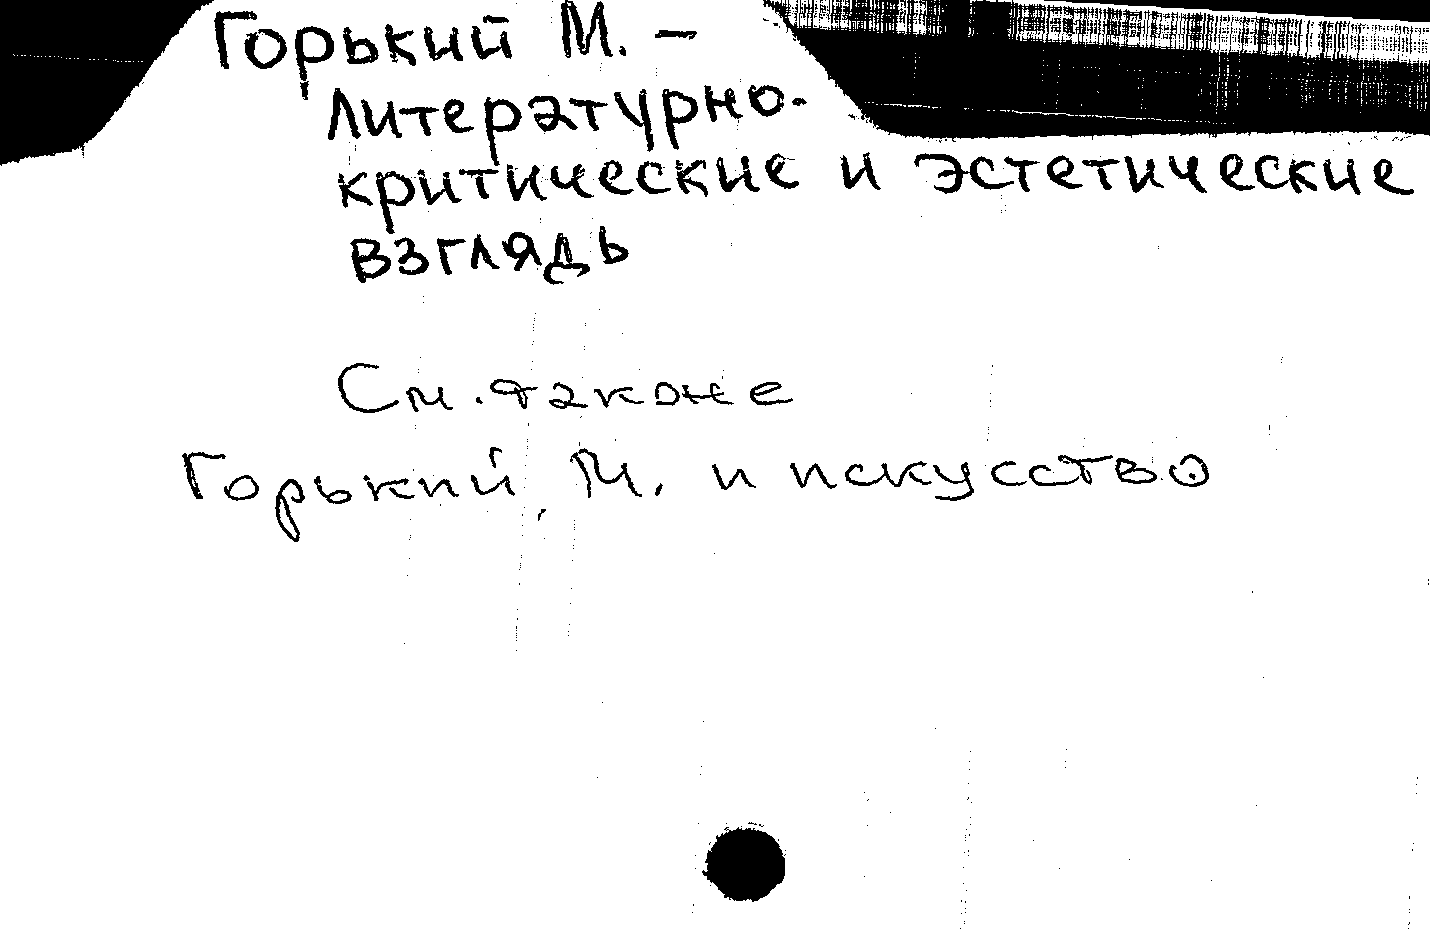 Горький М. –
литературно-
критические и эстетические
взгляды
См. также
Горький, М. и искусство